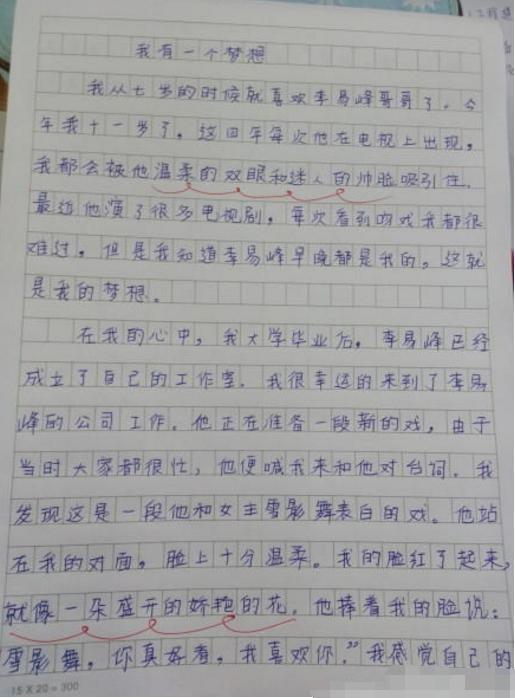 我有一个梦想
我从七岁的时候就喜欢李易峰哥哥了。今
年我十一岁了。这四年每次他在电视上出现，
我都会被他温柔的双眼和迷人的帅脸吸引住。
最近他演了很多电视剧，每次看到吻戏我都很
难过。但是我知道李易峰早晚都是我的。这就
是我的梦想。
在我的心中，我大学毕业后。李易峰已经
成立了自己的工作室。我很幸运的来到了李易
峰的公司工作。他正在准备一段新的戏，由于
当时大家都很忙，他便喊我来和他对台词。我
发现这是一段他和女主雪影舞表白的戏。他站
在我的对面，脸上十分温柔。我的脸红了起来，
就像一朵盛开的娇艳的花。他捧着我的脸说：
雪影舞，你真好看，我喜欢你。”我感觉自己的
15 X 20 = 300